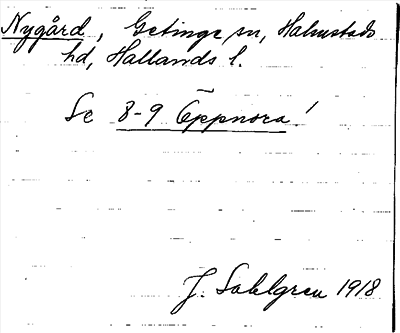 Nygård, Getinge sn, Halmstads
hd, Hallands l.
Se 8-9 Öppnora!
J. Sahlgren 1918